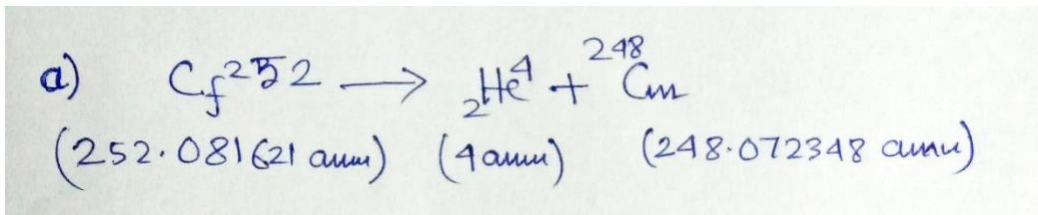 a) Cf²⁵² ⟶ ₂He⁴ + ²⁴⁸Cm
(252.081621 amu) (4 amu) (248.072348 amu)